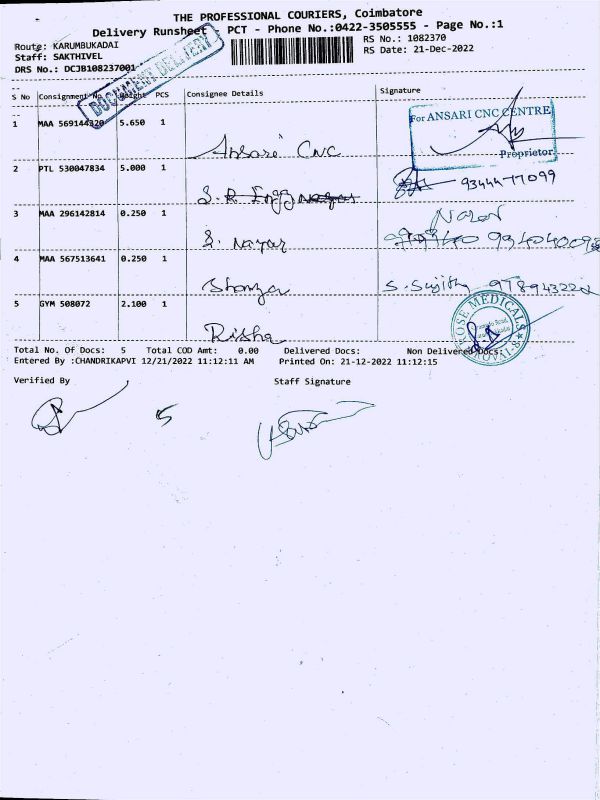 THE PROFESSIONAL COURIERS, Coimbatore
Delivery Runsheet - PCT - Phone No.:0422-3505555 - Page No.:1
Route: KARUMBUKADAI
RS No.: 1082370
Staff: SAKTHIVEL
RS Date: 21-Dec-2022
DRS No.: DCJB108237001
DOCUMENT DELIVERY
S No Consignment No Weight PCS Consignee Details Signature
1 MAA 569144320 5.650 1
For ANSARI CNC CENTRE
Ansari CNC
Proprietor
2 PTL 530047834 5.000 1
93444 77099
S. R. Engg
3 MAA 296142814 0.250 1
S. Nagar
4 MAA 567513641 0.250 1
S. Sujitha
5 GYM 508072 2.100 1
ROSE MEDICALS
KOVAI-8
Risha
Total No. Of Docs: 5 Total COD Amt: 0.00 Delivered Docs: Non Delivered Docs:
Entered By :CHANDRIKAPVI 12/21/2022 11:12:11 AM Printed On: 21-12-2022 11:12:15
Verified By Staff Signature
5